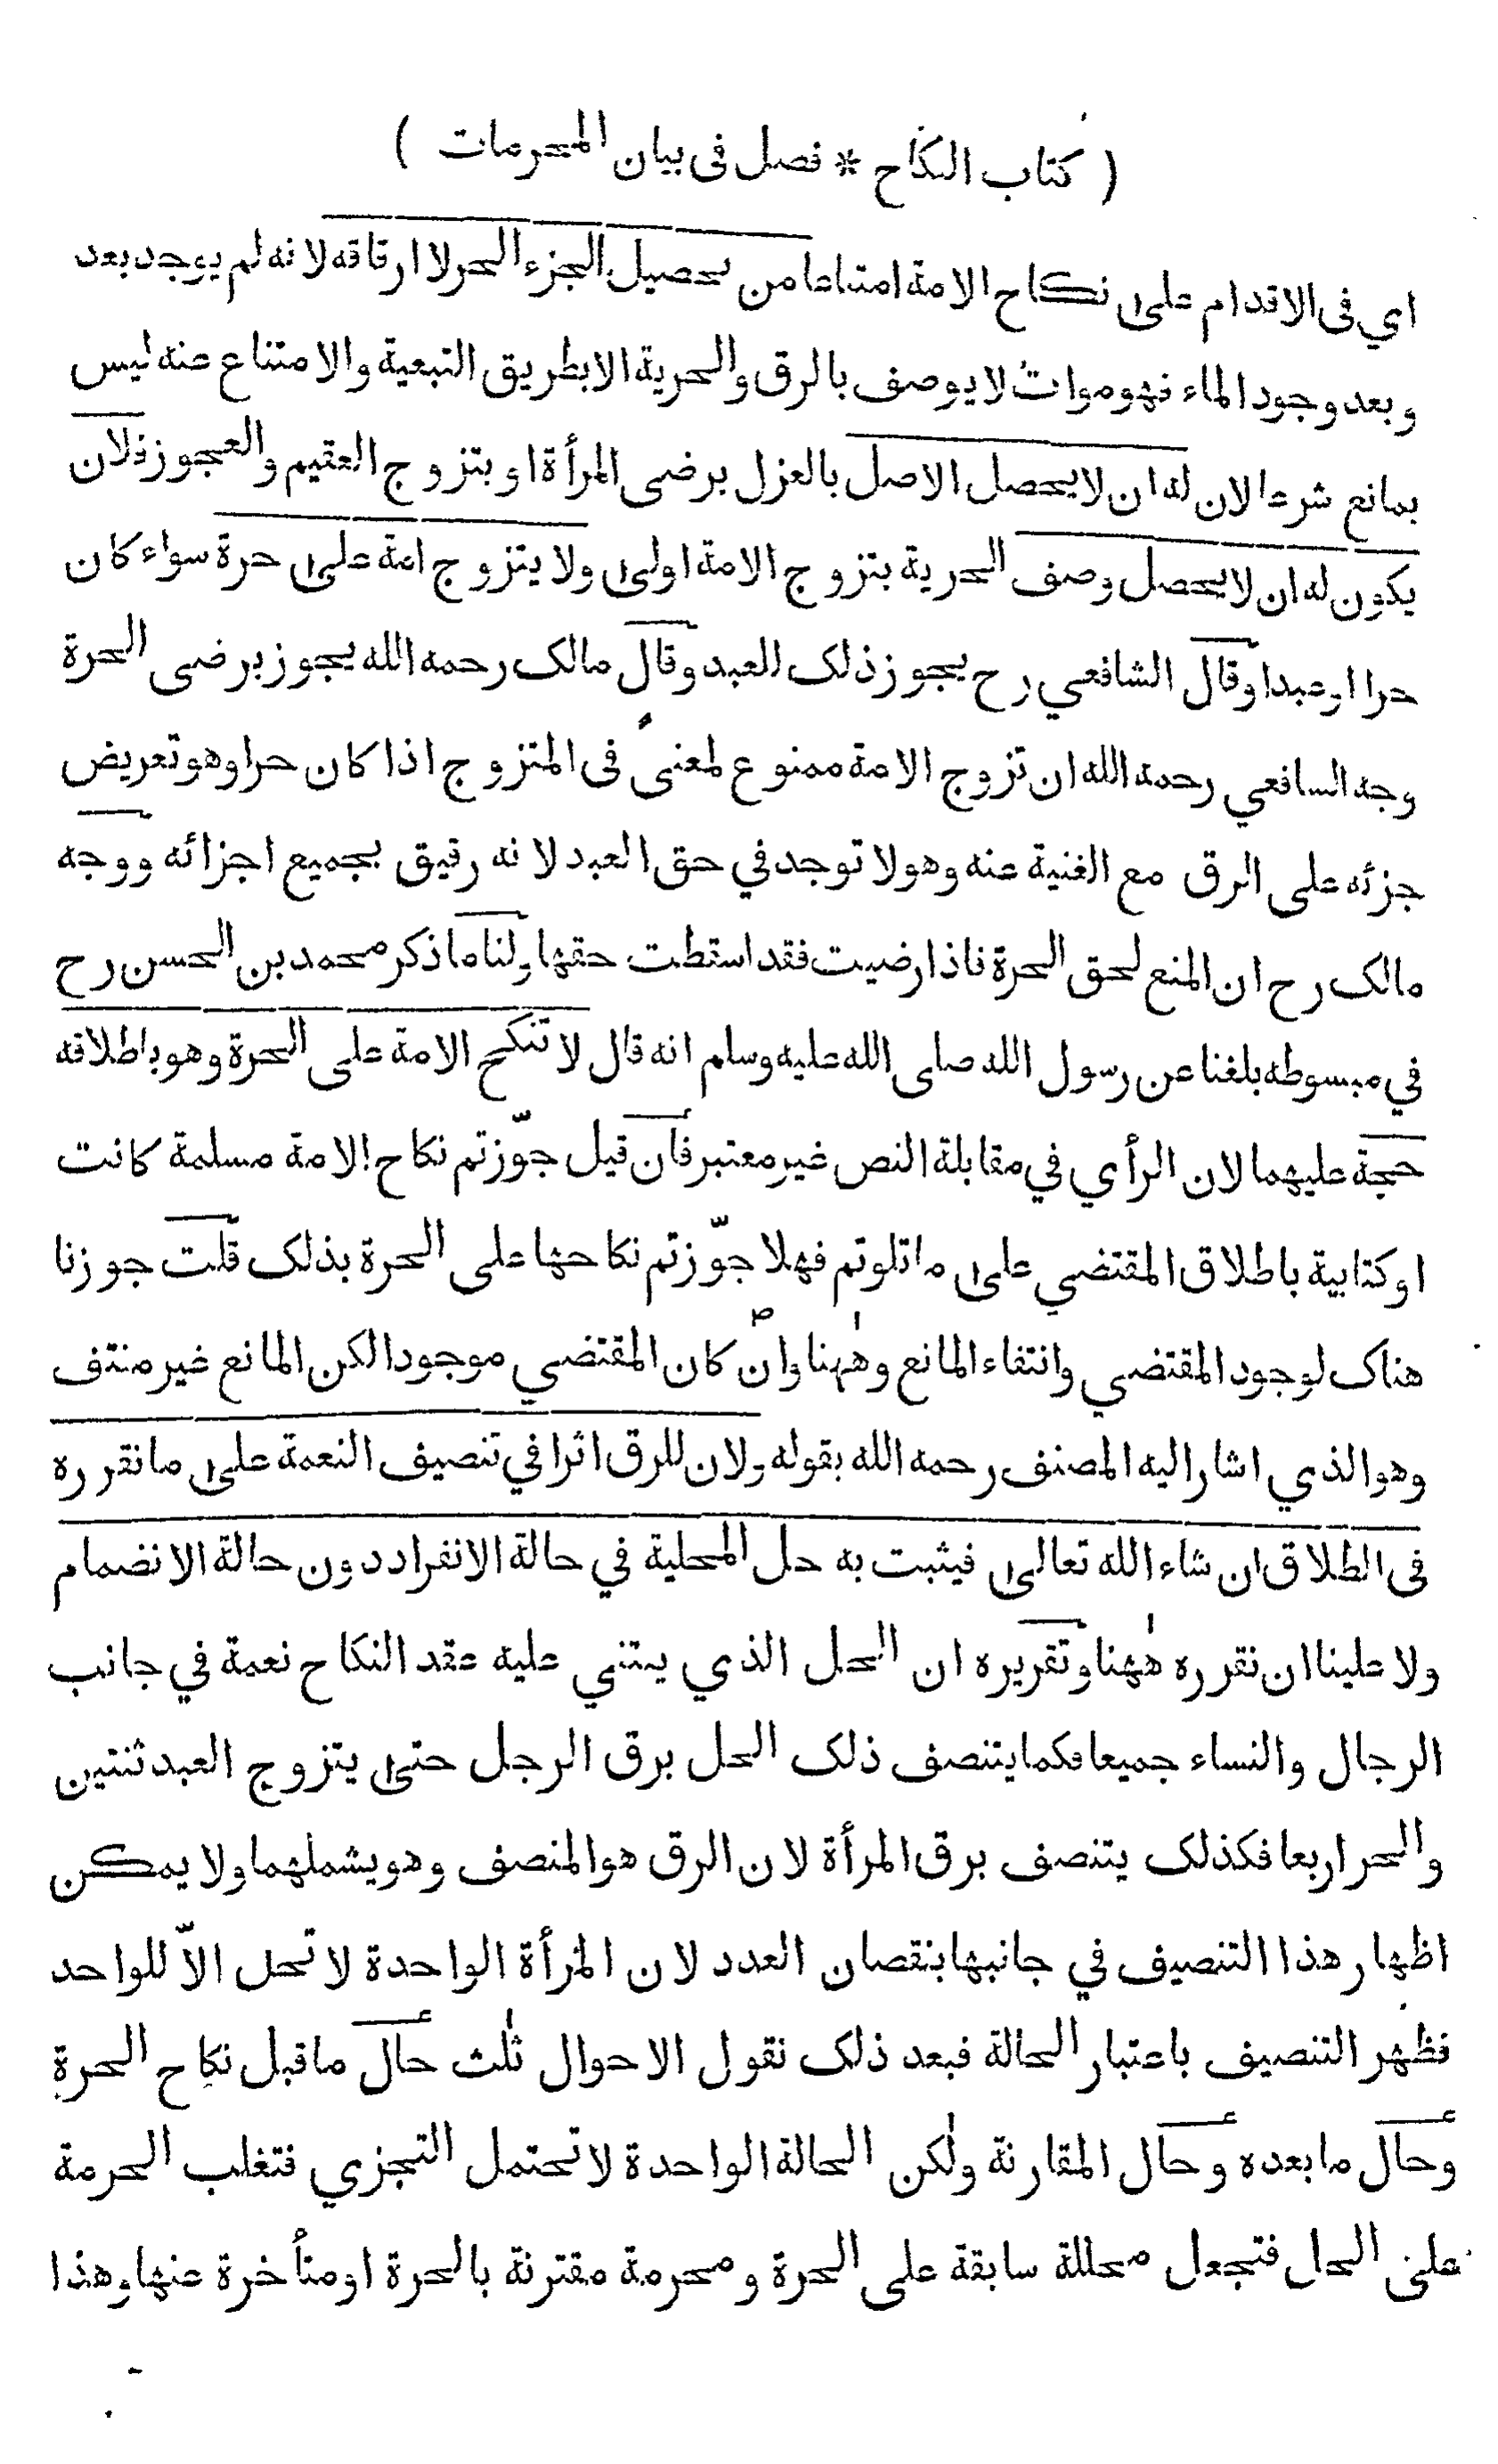 ( كتاب النكاح * فصل في بيان المحرمات )
اي في الاقدام على نكاح الامة امتناعا من تحصيل الجزء الحر لا ارقاقه لانه لم يوجد بعد
وبعد وجود الماء فهو موات لا يوصف بالرق والحرية الا بطريق التبعية والامتناع عنه ليس
بمانع شرعا لان له ان لا يحصل الاصل بالعزل برضى المرأة او بتزوج العقيم والعجوز فلان
يكون له ان لا يحصل وصف الحرية بتزوج الامة اولى ولا يتزوج امة على حرة سواء كان
حرا او عبدا وقال الشافعي رح يجوز ذلك للعبد وقال مالك رحمه الله يجوز برضى الحرة
وجه السافعي رحمه الله ان تزوج الامة ممنوع لمعنى في المتزوج اذا كان حرا وهو تعريض
جزئه على الرق مع الغنية عنه وهو لا توجد في حق العبد لانه رقيق بجميع اجزائه ووجه
مالك رح ان المنع لحق الحرة فاذا رضيت فقد اسقطت حقها ولنا ما ذكر محمد بن الحسن رح
في مبسوطه بلغنا عن رسول الله صلى الله عليه وسلم انه قال لا تنكح الامة على الحرة وهو باطلاقه
حجة عليهما لان الرأي في مقابلة النص غير معتبر فان قيل جوّزتم نكاح الامة مسلمة كانت
او كتابية باطلاق المقتضي على ما تلوتم فهلا جوّزتم نكاحها على الحرة بذلك قلت جوزنا
هناك لوجود المقتضي وانتفاء المانع وههنا وان كان المقتضي موجودا لكن المانع غير منتف
وهو الذي اشار اليه المصنف رحمه الله بقوله ولان للرق اثرا في تنصيف النعمة على ما نقرره
في الطلاق ان شاء الله تعالى فيثبت به حل المحلية في حالة الانفراد دون حالة الانضمام
ولا علينا ان نقرره ههنا وتقريره ان الحل الذي يبتني عليه عقد النكاح نعمة في جانب
الرجال والنساء جميعا فكما يتنصف ذلك الحل برق الرجل حتى يتزوج العبد ثنتين
والحر اربعا فكذلك يتنصف برق المرأة لان الرق هو المنصف وهو يشملهما ولا يمكن
اظهار هذا التنصيف في جانبها بنقصان العدد لان المرأة الواحدة لا تحل الاّ للواحد
فظهر التنصيف باعتبار الحالة فبعد ذلك نقول الاحوال ثلث حال ما قبل نكاح الحرة
وحال ما بعده وحال المقارنة ولكن الحالة الواحدة لا تحتمل التجزي فتغلب الحرمة
على الحل فتجعل محللة سابقة على الحرة ومحرمة مقترنة بالحرة او متأخرة عنها وهذا